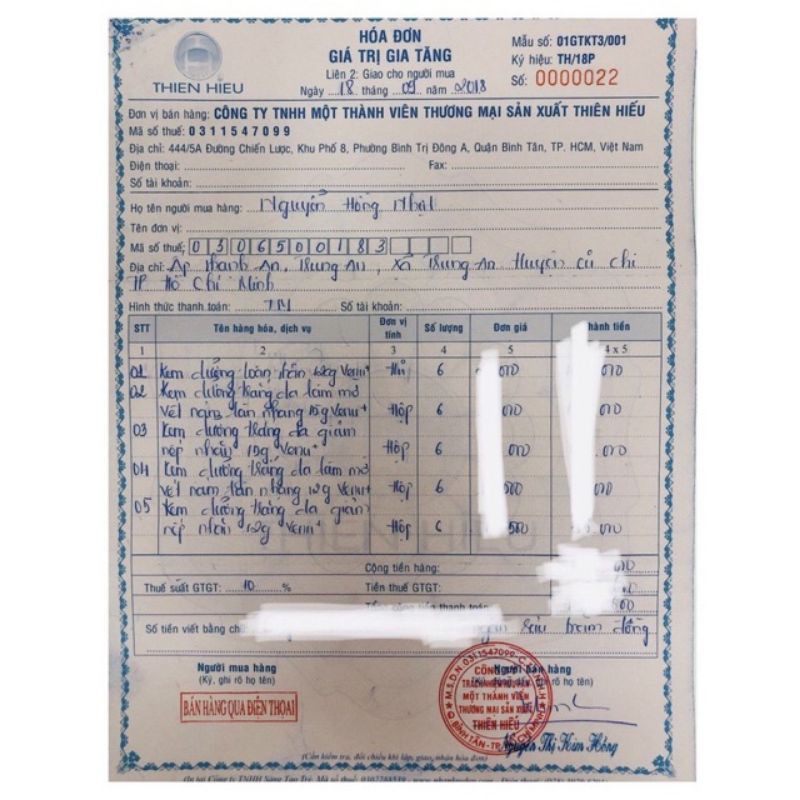 THIEN HIEU
HÓA ĐƠN
GIÁ TRỊ GIA TĂNG
Liên 2: Giao cho người mua
Ngày 18 tháng 09 năm 2018
Mẫu số: 01GTKT3/001
Ký hiệu: TH/18P
Số: 0000022
Đơn vị bán hàng: CÔNG TY TNHH MỘT THÀNH VIÊN THƯƠNG MẠI SẢN XUẤT THIÊN HIẾU
Mã số thuế: 0311547099
Địa chỉ: 444/5A Đường Chiến Lược, Khu Phố 8, Phường Bình Trị Đông A, Quận Bình Tân, TP. HCM, Việt Nam
Điện thoại: Fax:
Số tài khoản:
Họ tên người mua hàng: Nguyễn Hồng Nhật
Tên đơn vị:
Mã số thuế: 0306500183
Địa chỉ: Ấp Thanh An, Trung An, Xã Trung An Huyện Củ Chi
TP Hồ Chí Minh
Hình thức thanh toán: TM Số tài khoản:
STT Tên hàng hóa, dịch vụ Đơn vị tính Số lượng Đơn giá hành tiền
1 2 3 4 5 4 x 5
01 Kem dưỡng toàn thân Venu+ 6 000 000
02 Kem dưỡng trắng da làm mờ
vết nám, tàn nhang 15g Venu+ Hộp 6 000 000
03 Kem dưỡng trắng da giảm
nếp nhăn 15g Venu+ Hộp 6 000 000
04 Kem dưỡng trắng da làm mờ
vết nám tàn nhang 12g Venu+ Hộp 6 500 000
05 Kem dưỡng trắng da giảm
nếp nhăn 12g Venu+ Hộp 6 500 000
THIEN HIEU
Cộng tiền hàng: 000
Thuế suất GTGT: 10 % Tiền thuế GTGT:
tiền thanh toán: 600
Số tiền viết bằng chữ: ngàn sáu trăm đồng
Người mua hàng
(Ký, ghi rõ họ tên)
BÁN HÀNG QUA ĐIỆN THOẠI
Người bán hàng
M.S.D.N: 0311547099
CÔNG TY
TRÁCH NHIỆM HỮU HẠN
MỘT THÀNH VIÊN
THƯƠNG MẠI SẢN XUẤT
THIÊN HIẾU
Q. BÌNH TÂN - TP. HỒ CHÍ MINH
Nguyễn Thị Kim Hồng
(Cần kiểm tra, đối chiếu khi lập, giao, nhận hóa đơn)